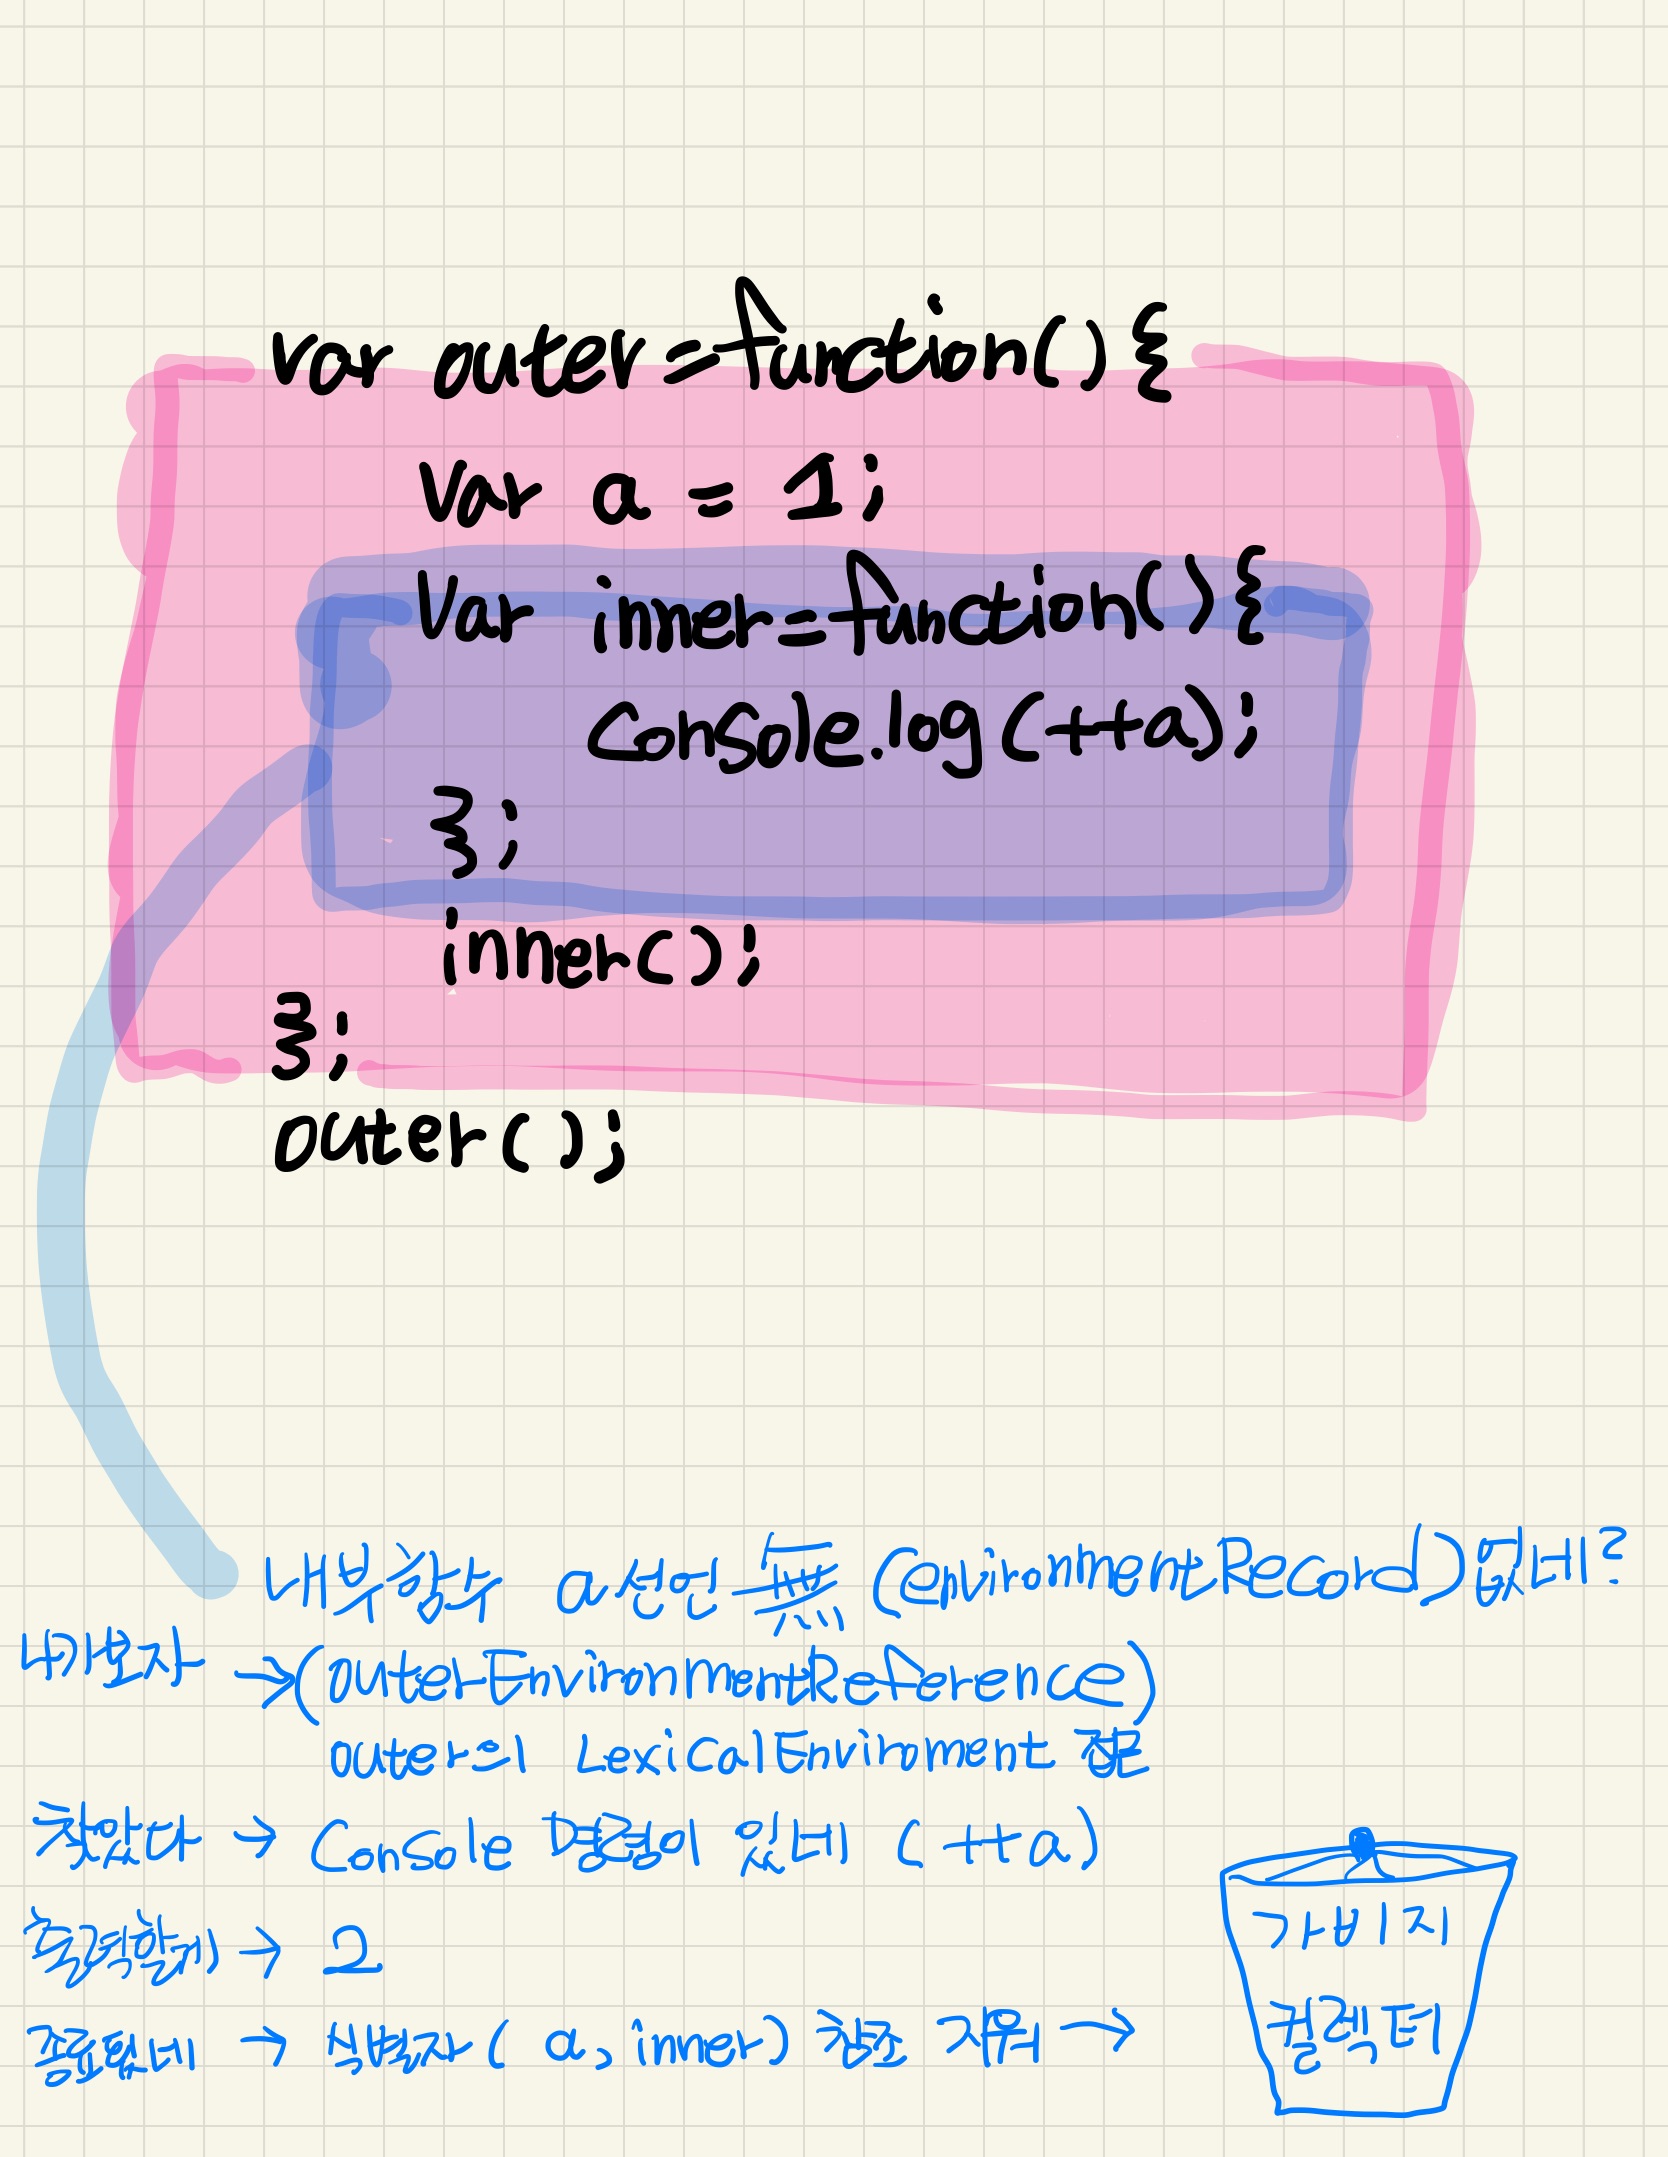 var outer=function(){
var a = 1;
var inner=function(){
console.log(++a);
};
inner();
};
outer();
내부함수 a선언 無 (environmentRecord)없네?
나가보자 →(outerEnvironmentReference)
outer의 LexicalEnviroment 접근
찾았다 → Console 명령이 있네 (++a)
출력할게 → 2
종료됐네 → 식별자( a, inner) 참조 지워 →
가비지
컬렉터